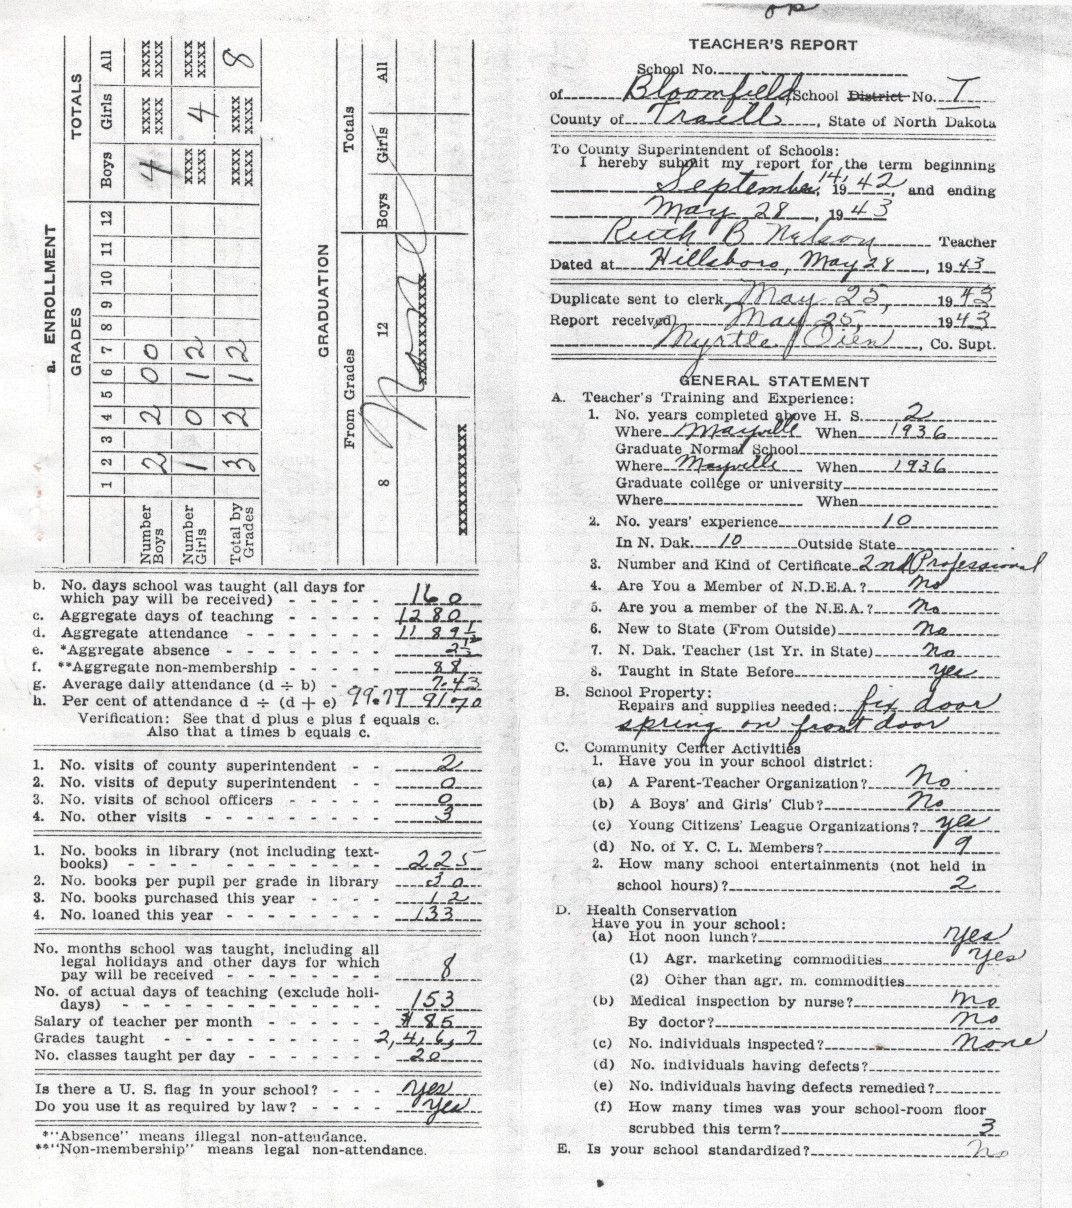 TEACHER'S REPORT
School No.
of Bloomfield School District No. 7
County of Traill, State of North Dakota
To County Superintendent of Schools:
I hereby submit my report for the term beginning
September 14, 1942, and ending
May 28, 1943
Ruth B Nelson Teacher
Dated at Hillsboro, May 28, 1943
Duplicate sent to clerk May 25, 1943
Report received May 25, 1943
Myrtle Oien, Co. Supt.
GENERAL STATEMENT
A. Teacher's Training and Experience:
1. No. years completed above H. S. 2
Where Mayville When 1936
Graduate Normal School
Where Mayville When 1936
Graduate college or university
Where When
2. No. years' experience 10
In N. Dak. 10 Outside State
3. Number and Kind of Certificate 2nd Professional
4. Are You a Member of N.D.E.A.? No
5. Are you a member of the N.E.A.? No
6. New to State (From Outside) no
7. N. Dak. Teacher (1st Yr. in State) no
8. Taught in State Before yes
B. School Property:
Repairs and supplies needed: fix door
spring on front door
C. Community Center Activities
1. Have you in your school district:
(a) A Parent-Teacher Organization? No
(b) A Boys' and Girls' Club? No
(c) Young Citizens' League Organizations? yes
(d) No. of Y. C. L. Members? 9
2. How many school entertainments (not held in
school hours)? 2
D. Health Conservation
Have you in your school:
(a) Hot noon lunch? yes
(1) Agr. marketing commodities yes
(2) Other than agr. m. commodities
(b) Medical inspection by nurse? no
By doctor? no
(c) No. individuals inspected? none
(d) No. individuals having defects?
(e) No. individuals having defects remedied?
(f) How many times was your school-room floor
scrubbed this term? 3
E. Is your school standardized? no
a. ENROLLMENT
GRADES TOTALS
1 2 3 4 5 6 7 8 9 10 11 12 Boys Girls All
Number Boys 2 2 0 0 4 xxxx xxxx xxxx xxxx
Number Girls 1 0 1 2 xxxx xxxx 4 xxxx xxxx
Total by Grades 3 2 1 2 xxxx xxxx xxxx xxxx 8
GRADUATION
From Grades Totals
8 12 Boys Girls All
None
xxxxxxxxxxxx
xxxxxxxxxxxx
b. No. days school was taught (all days for
which pay will be received) 160
c. Aggregate days of teaching 1280
d. Aggregate attendance 1189 1/2
e. *Aggregate absence 2 1/2
f. **Aggregate non-membership 88
g. Average daily attendance (d ÷ b) 7.43
h. Per cent of attendance d ÷ (d + e) 99.79
Verification: See that d plus e plus f equals c.
Also that a times b equals c.
1. No. visits of county superintendent 2
2. No. visits of deputy superintendent 0
3. No. visits of school officers 0
4. No. other visits 3
1. No. books in library (not including text-
books) 225
2. No. books per pupil per grade in library 30
3. No. books purchased this year 12
4. No. loaned this year 133
No. months school was taught, including all
legal holidays and other days for which
pay will be received 8
No. of actual days of teaching (exclude holi-
days) 153
Salary of teacher per month $85
Grades taught 2, 4, 6, 7
No. classes taught per day 20
Is there a U. S. flag in your school? yes
Do you use it as required by law? yes
*"Absence" means illegal non-attendance.
**"Non-membership" means legal non-attendance.